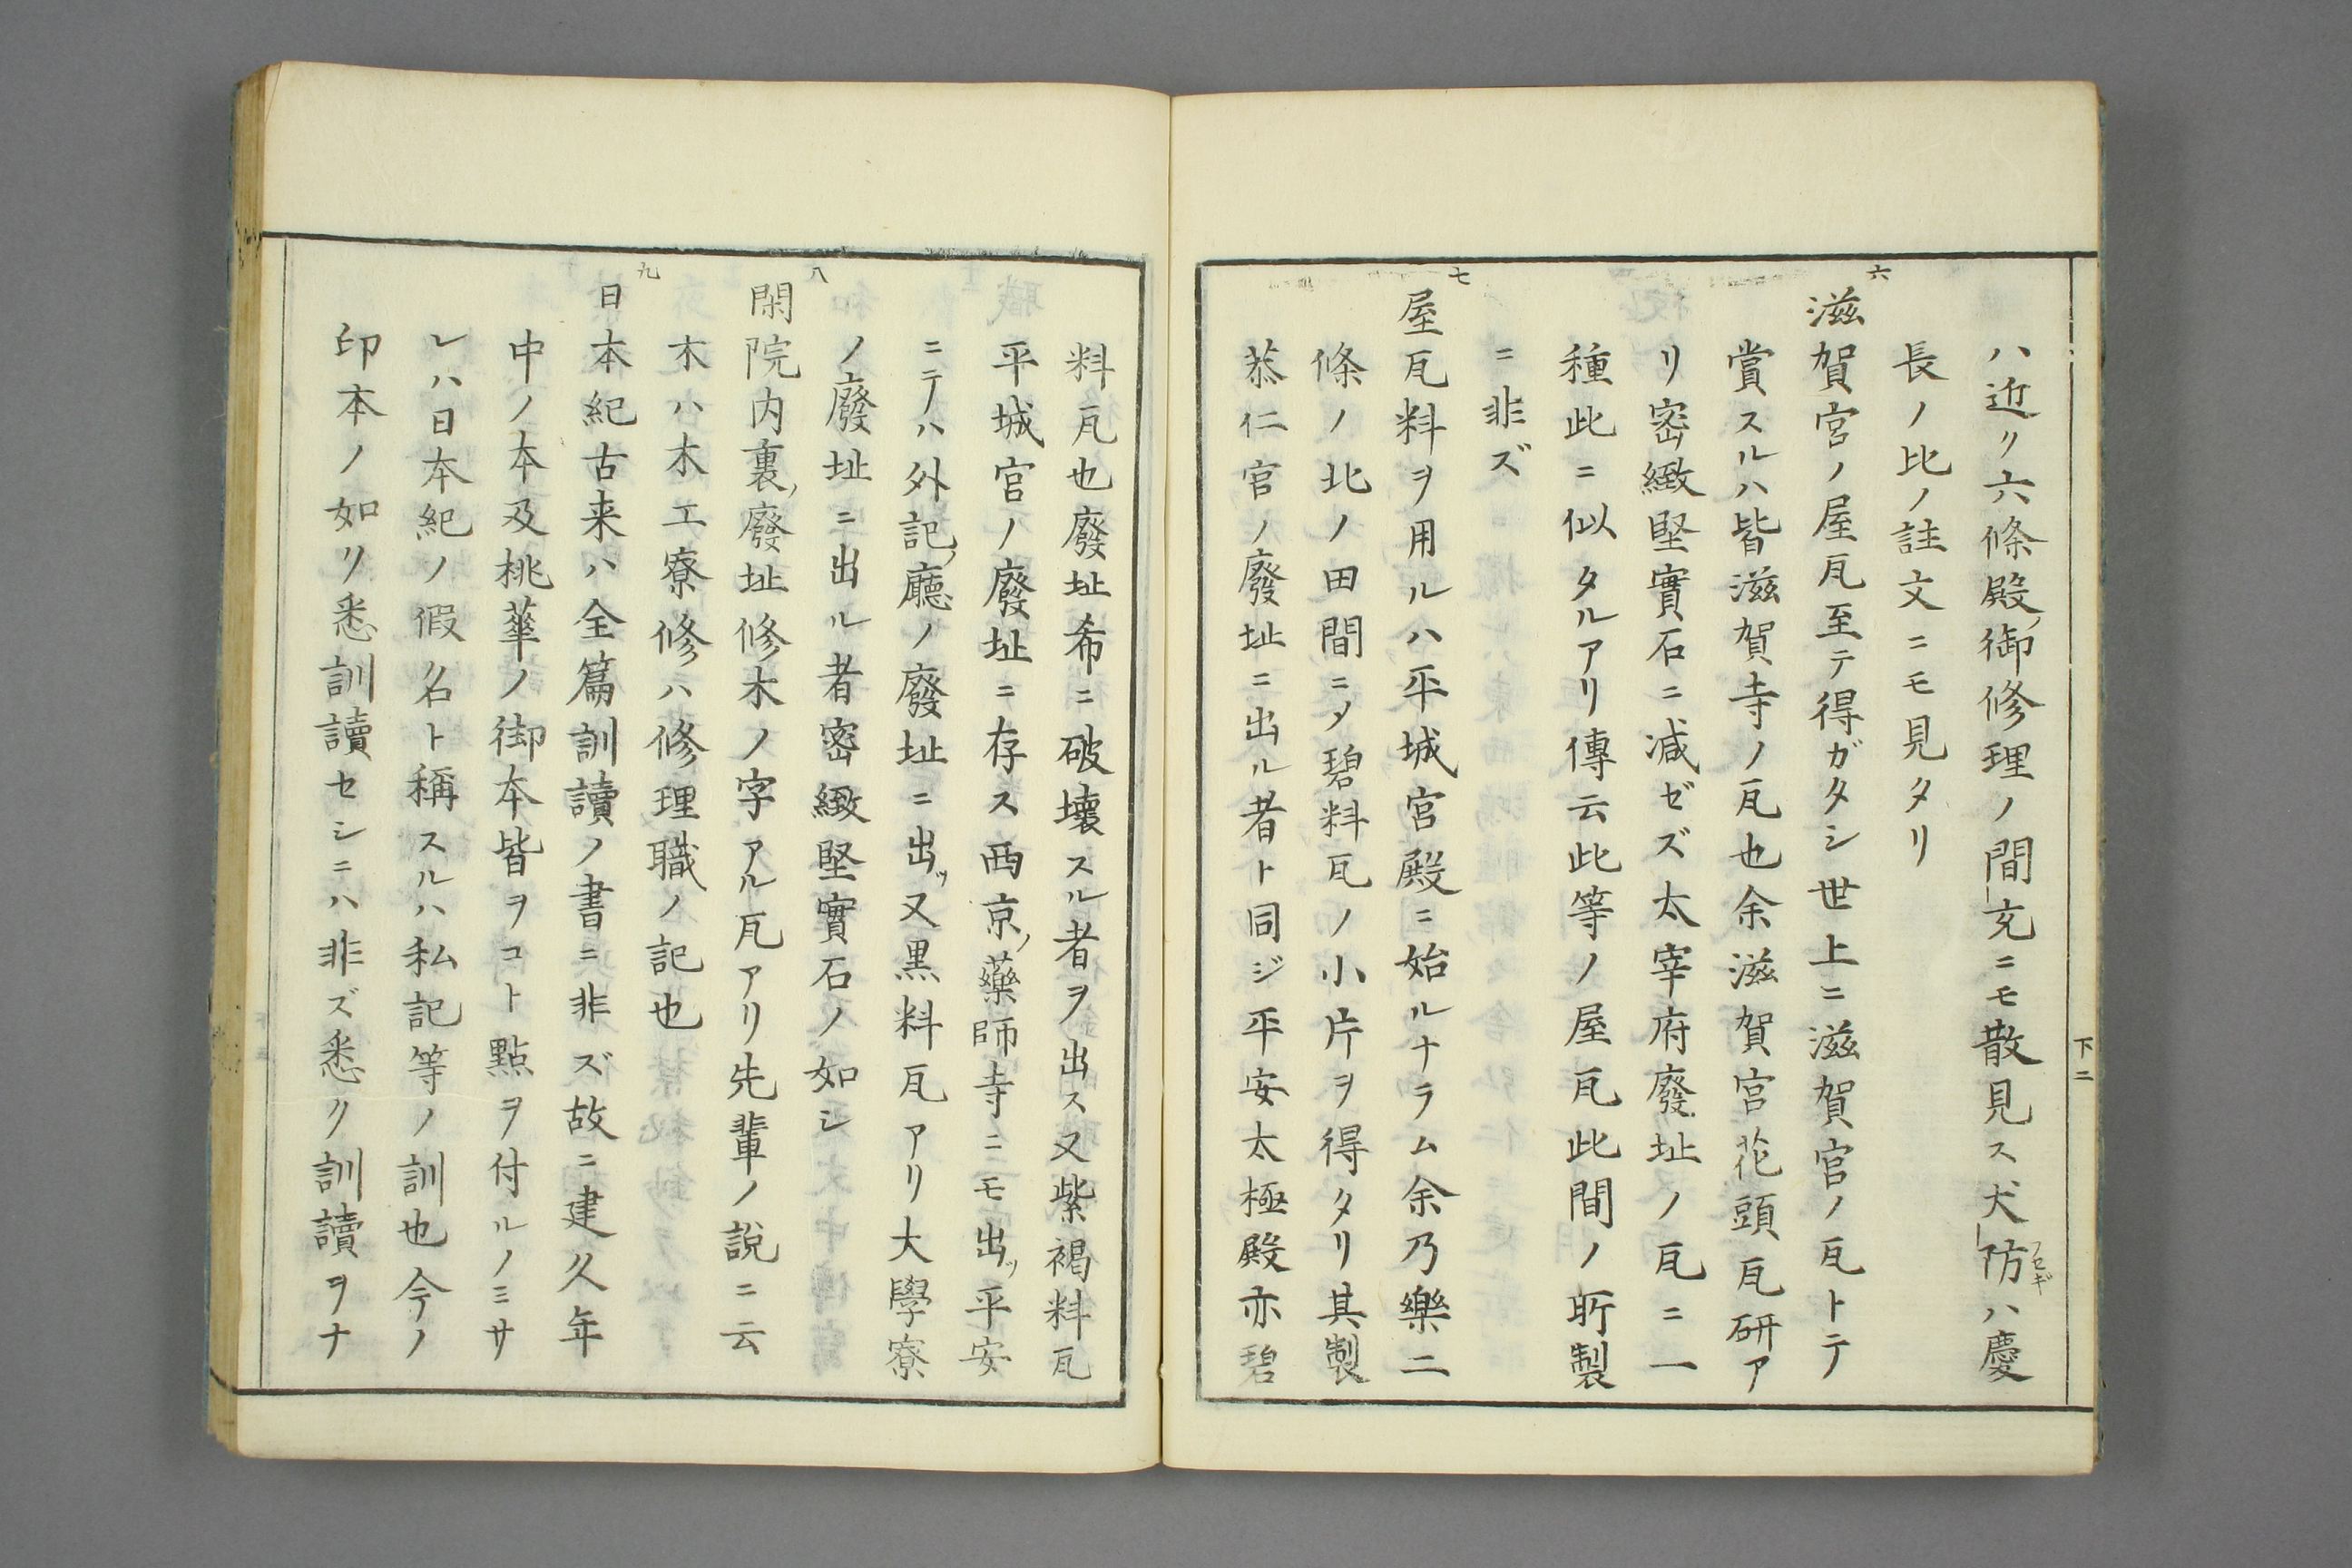 ハ近ク六條殿ノ御修理ノ間文ニモ散見ス犬防フセギハ慶
長ノ比ノ註文ニモ見タリ
六
滋賀宮ノ屋瓦至テ得ガタシ世上ニ滋賀宮ノ瓦トテ
賞スルハ皆滋賀寺ノ瓦也余滋賀宮花頭瓦研ア
リ密緻堅實石ニ減ゼズ太宰府廢址ノ瓦ニ一
種此ニ似タルアリ傳云此等ノ屋瓦此間ノ所製
ニ非ズ
七
屋瓦料ヲ用ルハ平城宮殿ニ始ルナラム余乃樂二
條ノ北ノ田間ニメ碧料瓦ノ小片ヲ得タリ其製
恭仁宮ノ廢址ニ出ル者ト同ジ平安太極殿亦碧
下二
料瓦也廢址希ニ破壊スル者ヲ出ス又紫褐料瓦
平城宮ノ廢址ニ存ス西京ノ藥師寺ニモ出ヅ平安
ニテハ外記ノ廳ノ廢址ニ出ヅ又黒料瓦アリ大學寮
ノ廢址ニ出ル者密緻堅實石ノ如シ
八
閑院内裏ノ廢址修木ノ字アル瓦アリ先輩ノ説ニ云
木ハ木工寮修ハ修理職ノ記也
九
日本紀古来ハ全篇訓讀ノ書ニ非ズ故ニ建久年
中ノ本及桃華ノ御本皆ヲコト點ヲ付ルノミサ
レハ日本紀ノ假名ト稱スルハ私記等ノ訓也今ノ
印本ノ如リ悉訓讀セシニハ非ズ悉ク訓讀ヲナ